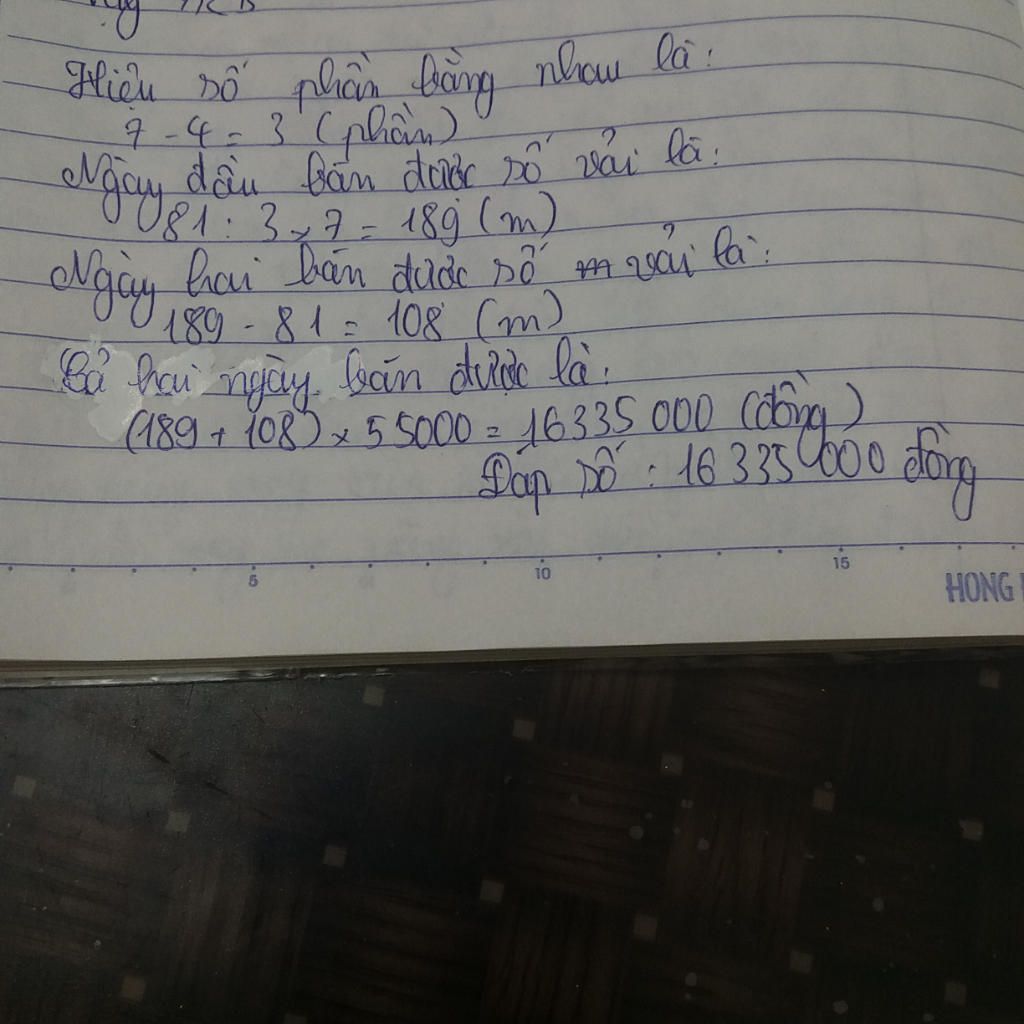 Hiệu số phần bằng nhau là:
7 - 4 = 3 (phần)
Ngày đầu bán được số vải là:
81 : 3 x 7 = 189 (m)
Ngày hai bán được số vải là:
189 - 81 = 108 (m)
Cả hai ngày bán được là:
(189 + 108) x 55000 = 16335 000 (đồng)
Đáp số : 16 335 000 đồng
5 10 15
HONG